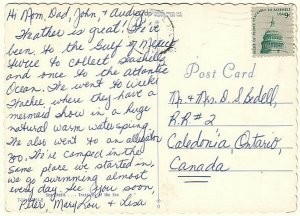 Hi Mom, Dad, John, & Audrey
Weather is great! We've
been to the Gulf of Mexico
twice to collect seashells
and once to the Atlantic
Ocean. We went to Weeki
Wachee where they had a
mermaid show in a huge
natural warm water spring.
We also went to an alligator
zoo. We've camped in the
same place we started in,
we go swimming almost
every day. See you soon,
Peter, Mary Lou & Lisa
Post Card
Mr. & Mrs. D. S. Bedell,
R.R. # 2
Caledonia, Ontario,
Canada